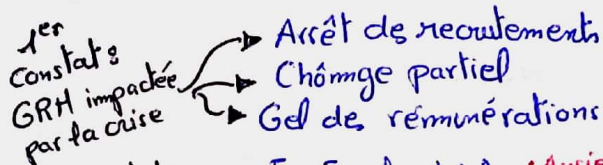 1er
Constat :
GRH impactée
par la crise
Arrêt des recrutements
Chômage partiel
Gel des rémunérations